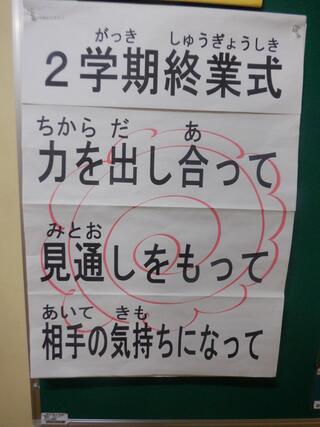 がっき しゅうぎょうしき
2学期終業式
ちから だ あ
力を出し合って
みとお
見通しをもって
あいて きも
相手の気持ちになって